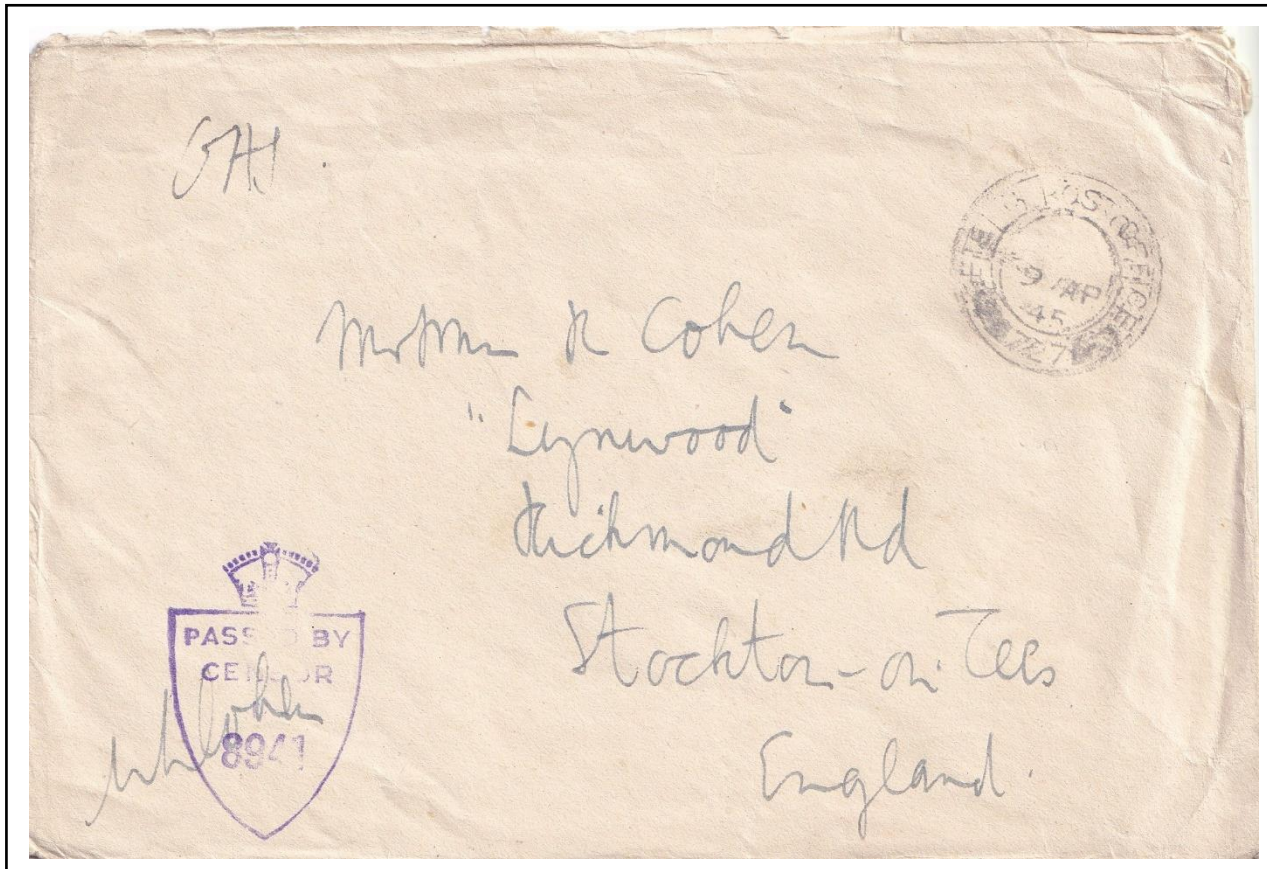 OAS
FIELD POST OFFICE
9 AP
45
727
Mr & Mrs R Cohen
"Lynwood"
Richmond Rd
Stockton-on-Tees
England.
PASSED BY
CENSOR
Cohen
8941